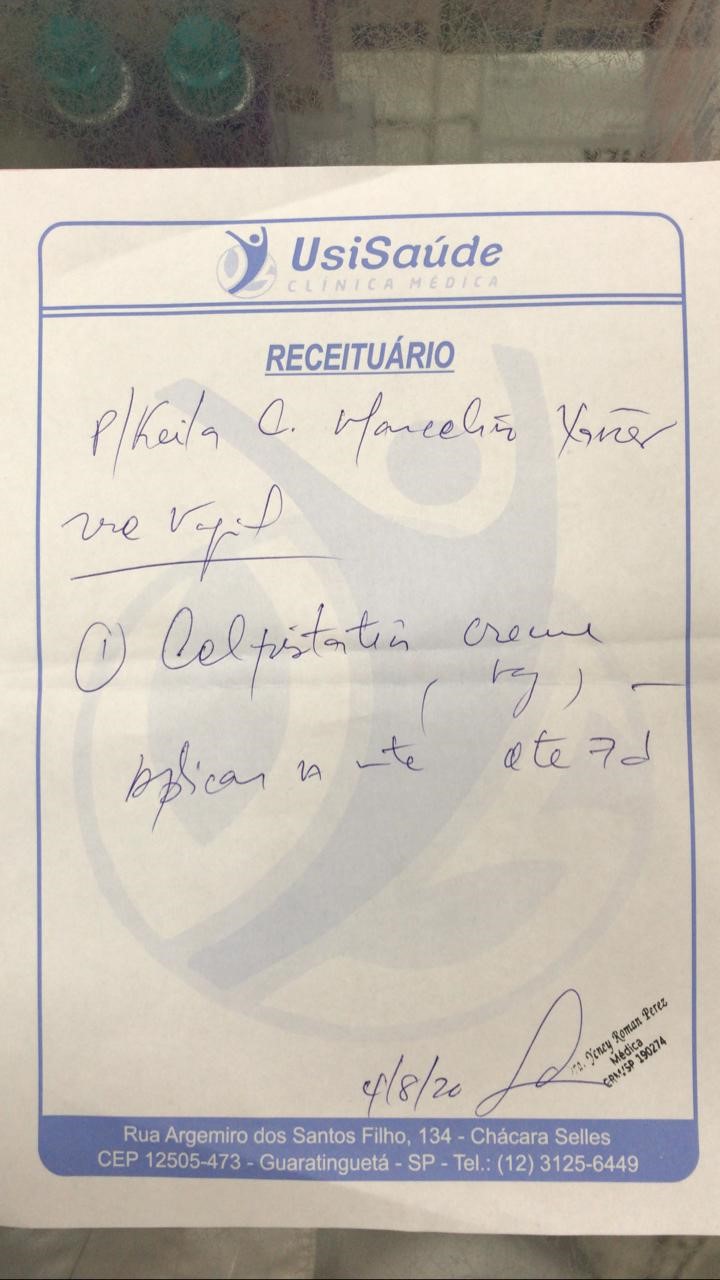 UsiSaúde
CLÍNICA MÉDICA
RECEITUÁRIO
P/ Keila C. Marcelino Xavier
via Vaginal
① Colpistatin creme
(vag)
Aplicar a nte até 7d
4/8/20
Dra. Yency Roman Perez
Médica
CRM/SP 190274
Rua Argemiro dos Santos Filho, 134 - Chácara Selles
CEP 12505-473 - Guaratinguetá - SP - Tel.: (12) 3125-6449